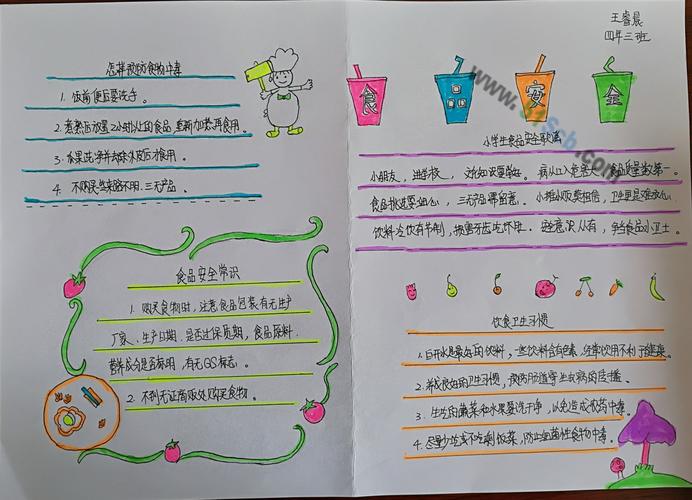 王睿晨
四年三班
怎样预防食物中毒
1. 饭前便后要洗手。
2. 煮熟后放置2小时以上的食品，重新加热再食用。
3. 水果洗净并去除外皮后才食用。
4. 不购买来路不明、三无产品。
食品安全常识
1. 购买食物时，注意食品包装有无生产
厂家、生产日期，是否过保质期，食品原料、
营养成分是否标明，有无QS标志。
2. 不到无证商贩处购买食物。
食品安全
小学生食品安全歌谣
小朋友，进学校，
食品挑选要细心，三无产品要留意。小摊小贩莫相信，卫生更是难放心
饮料冷饮有节制，损害牙齿吃坏肚。
饮食卫生习惯
1. 白开水是最好的饮料，一些饮料含有色素，经常饮用不利于健康。
2. 养成良好的卫生习惯，预防肠道寄生虫病的传播。
3. 生吃的蔬菜和水果要洗干净，以免造成农药中毒。
4. 尽量少吃或不吃剩饭菜，防止细菌性食物中毒。